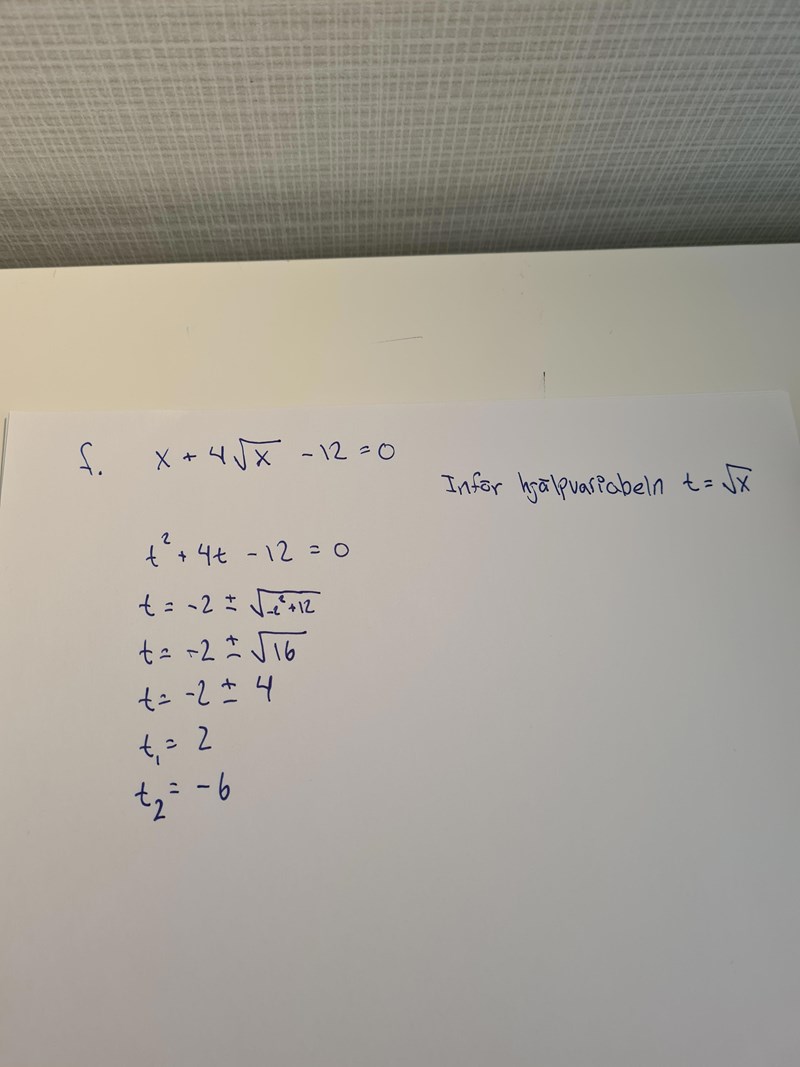 f. x + 4√x - 12 = 0
Inför hjälpvariabeln t = √x
t² + 4t - 12 = 0
t = -2 ± √-2²+12
t = -2 ± √16
t = -2 ± 4
t₁ = 2
t₂ = -6